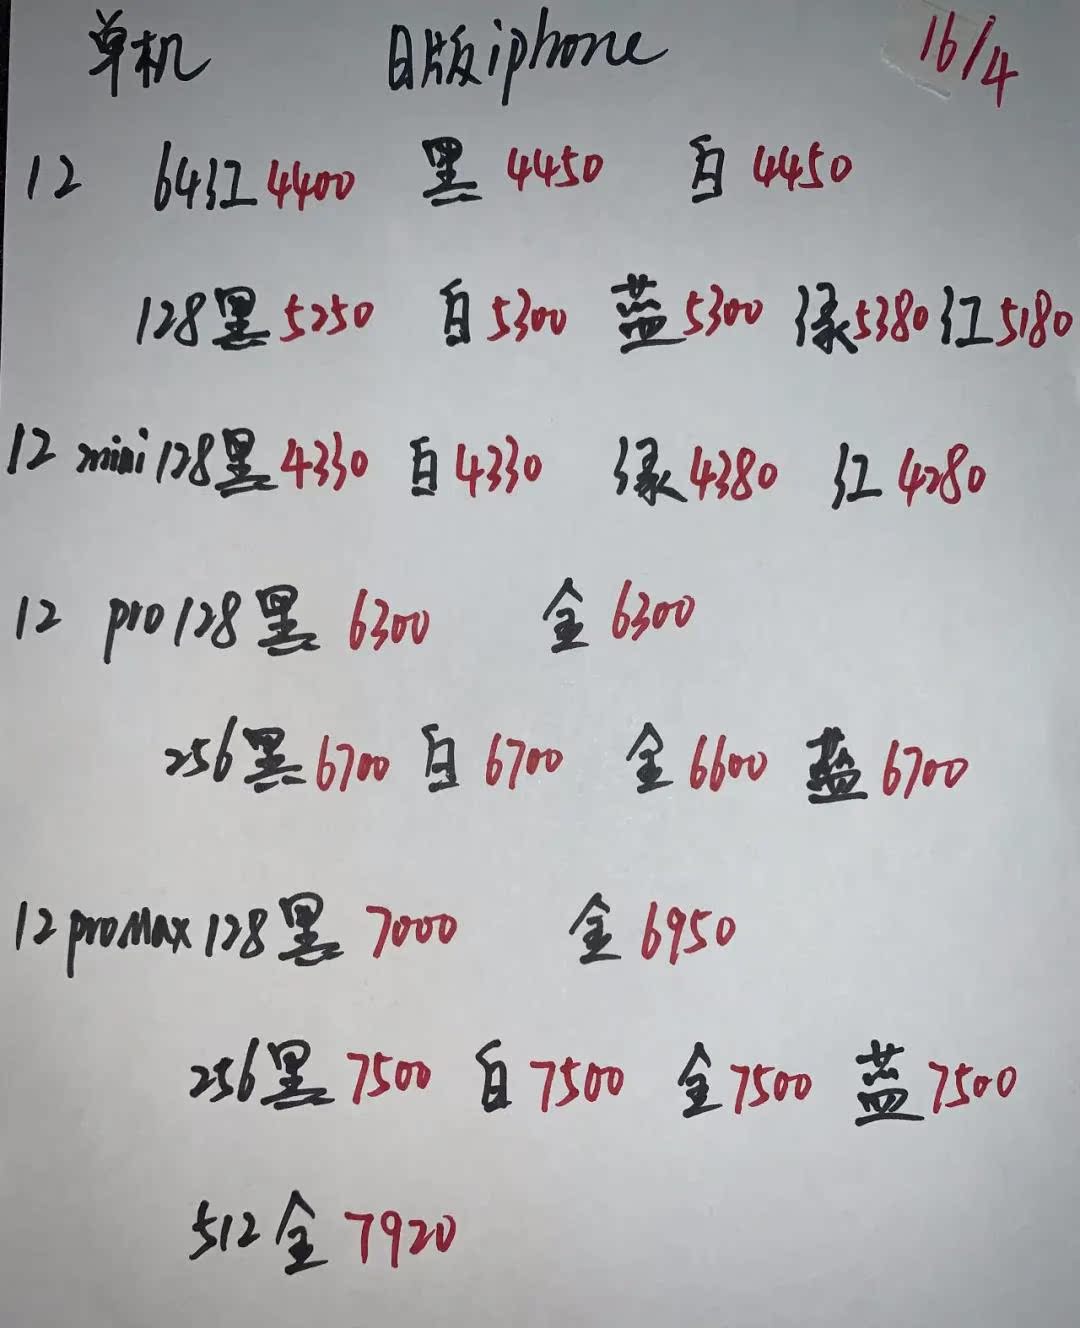 单机 日版iphone 16/4
12 64红4400 黑4450 白4450
128黑5250 白5300 蓝5300 绿5380 红5180
12 mini 128黑4330 白4330 绿4380 红4280
12 pro 128黑 6300 金6300
256黑6700 白6700 金6600 蓝6700
12 pro Max 128黑 7000 金6950
256黑7500 白7500 金7500 蓝7500
512金7920